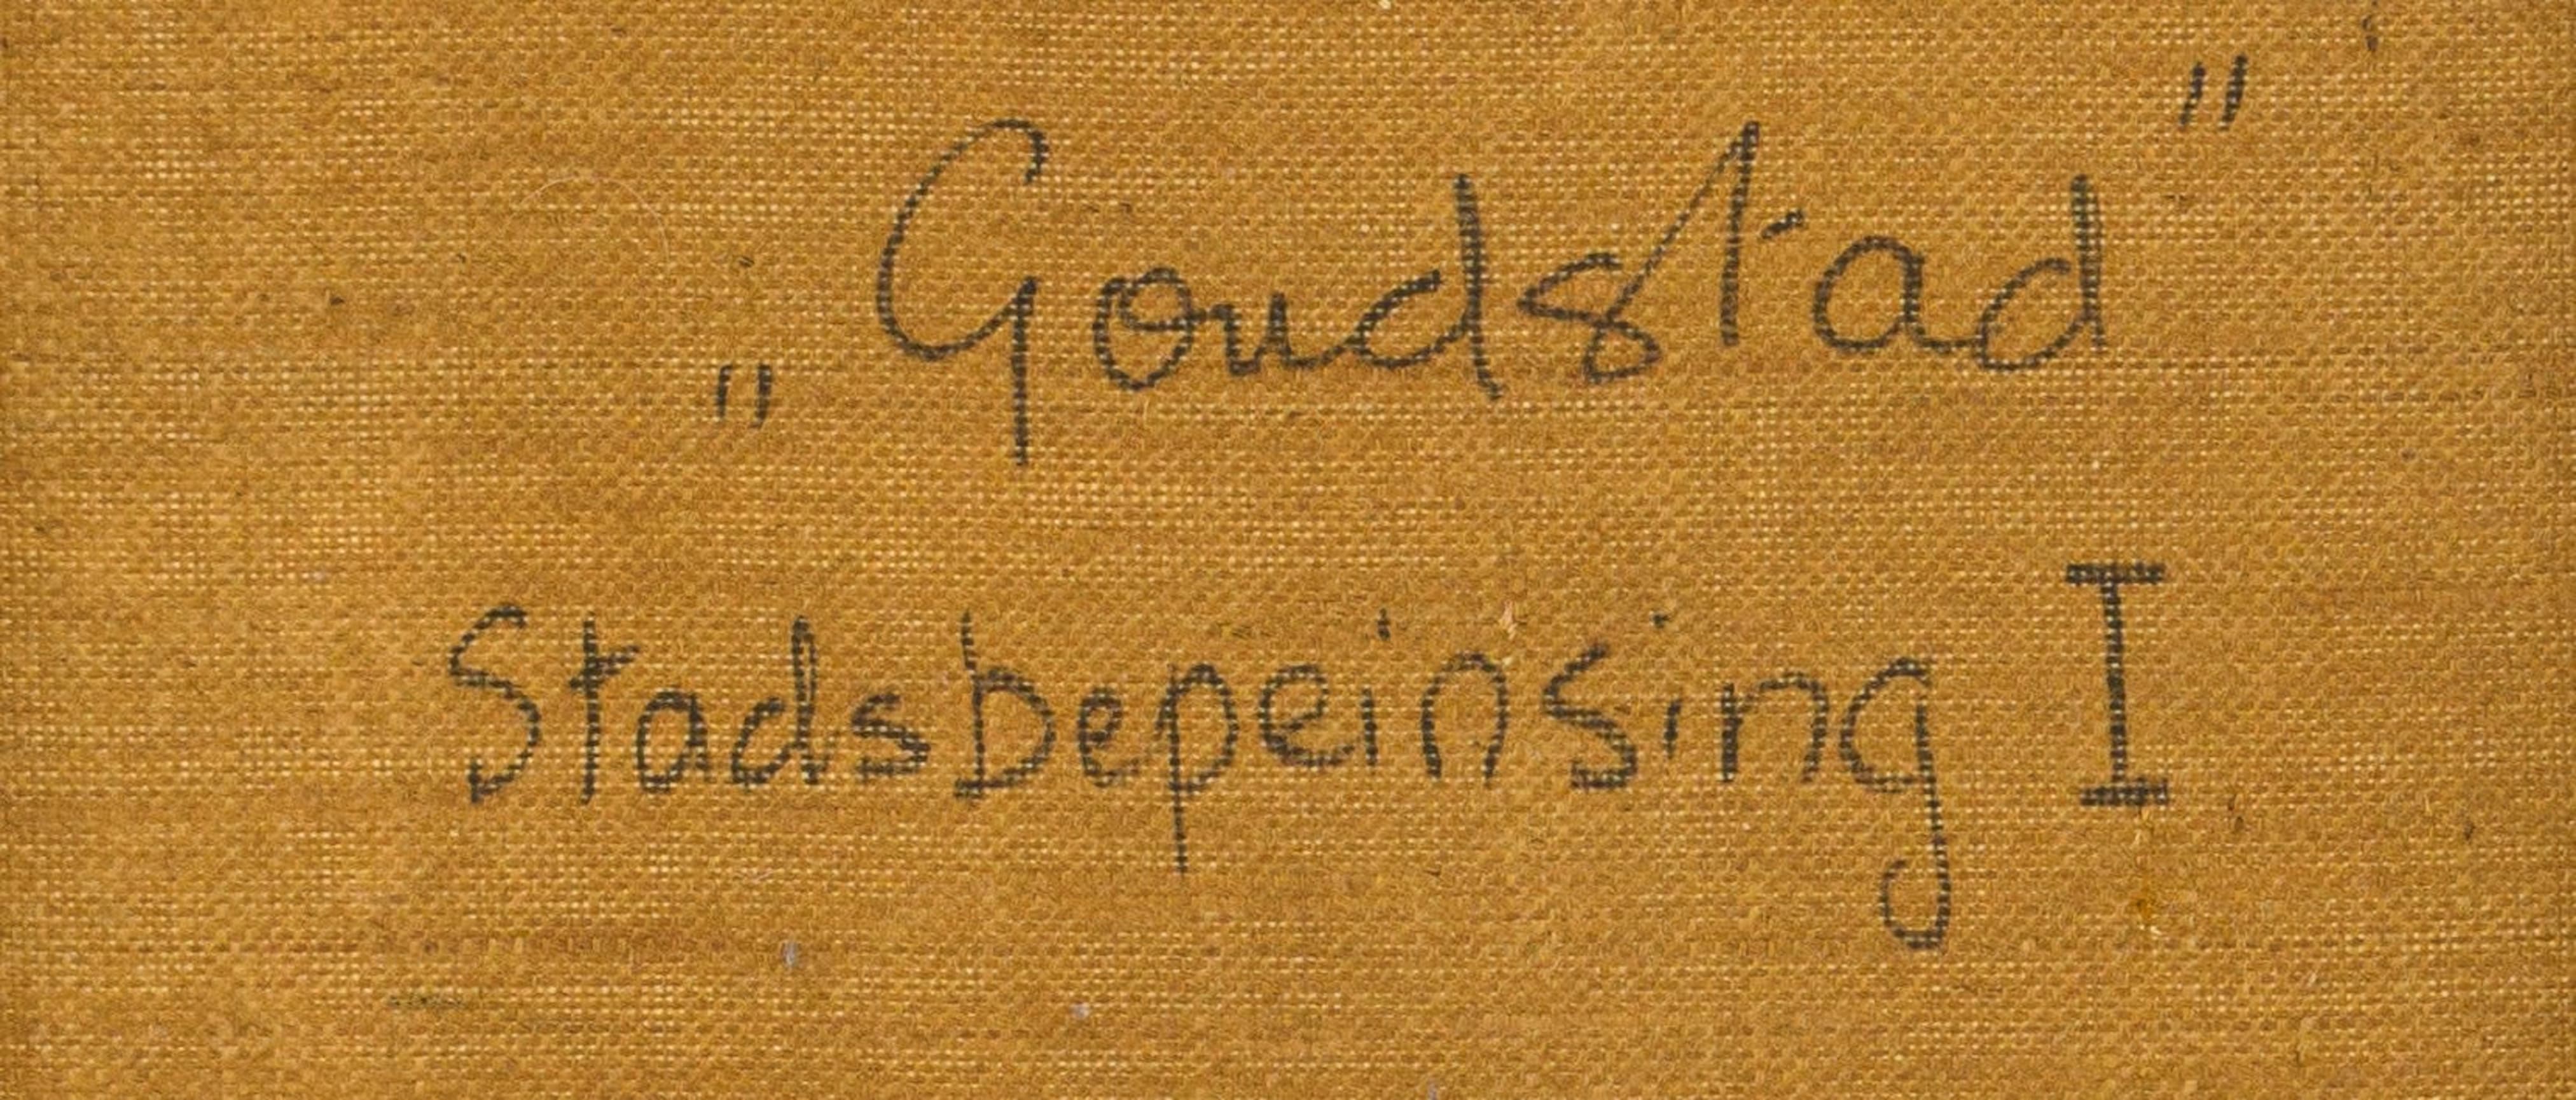 „Goudstad"
Stadsbepeinsing I